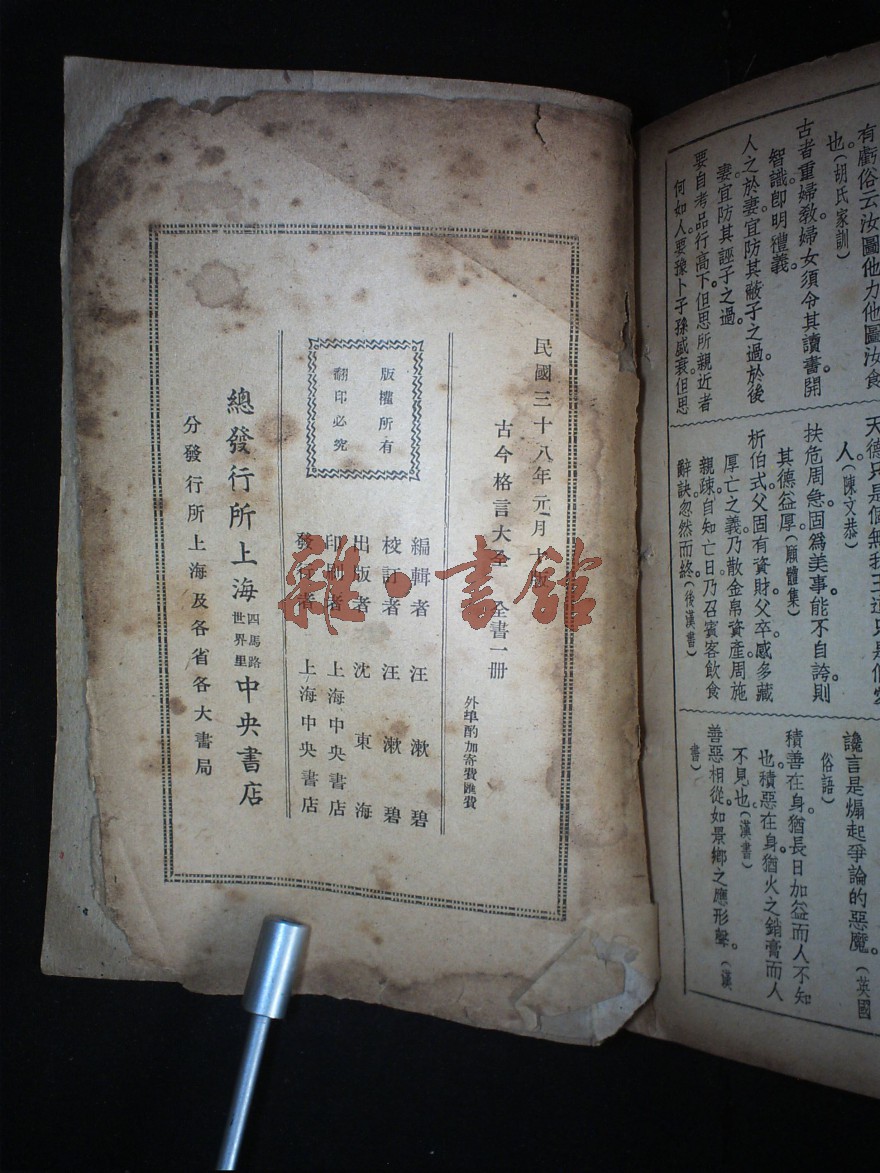 有虧俗云汝圖他力他圖汝食
也。(胡氏家訓)
古者重婦教婦女須令其讀書開
智識卽明禮義。
人之於妻宜防其蔽子之過於後
妻宜防其誣子之過。
要自考品行高下但思所親近者
何如人要豫卜子孫盛衰但思
人。(陳文恭)
扶危周急固爲美事能不自誇則
其德益厚(願體集)
析伯式父固有資財父卒感多藏
厚亡之義乃散金帛資產周施
親疎自知亡日乃召賓客飲食
辭訣忽然而終(後漢書)
讒言是煽起爭論的惡魔。(英國
俗語)
積善在身猶長日加益而人不知
也。積惡在身猶火之銷膏而人
不見也(漢書)
善惡相從如景鄉之應形聲。(漢
書)
民國三十八年元月十版
古今格言大全 全書一冊
外埠酌加寄費匯費
版權所有
翻印必究
編輯者 汪漱碧
校訂者 汪漱碧
出版者 沈東海
印刷者 上海中央書店
發行者 上海中央書店
總發行所上海四馬路世界里中央書店
分發行所上海及各省各大書局
雜·書館